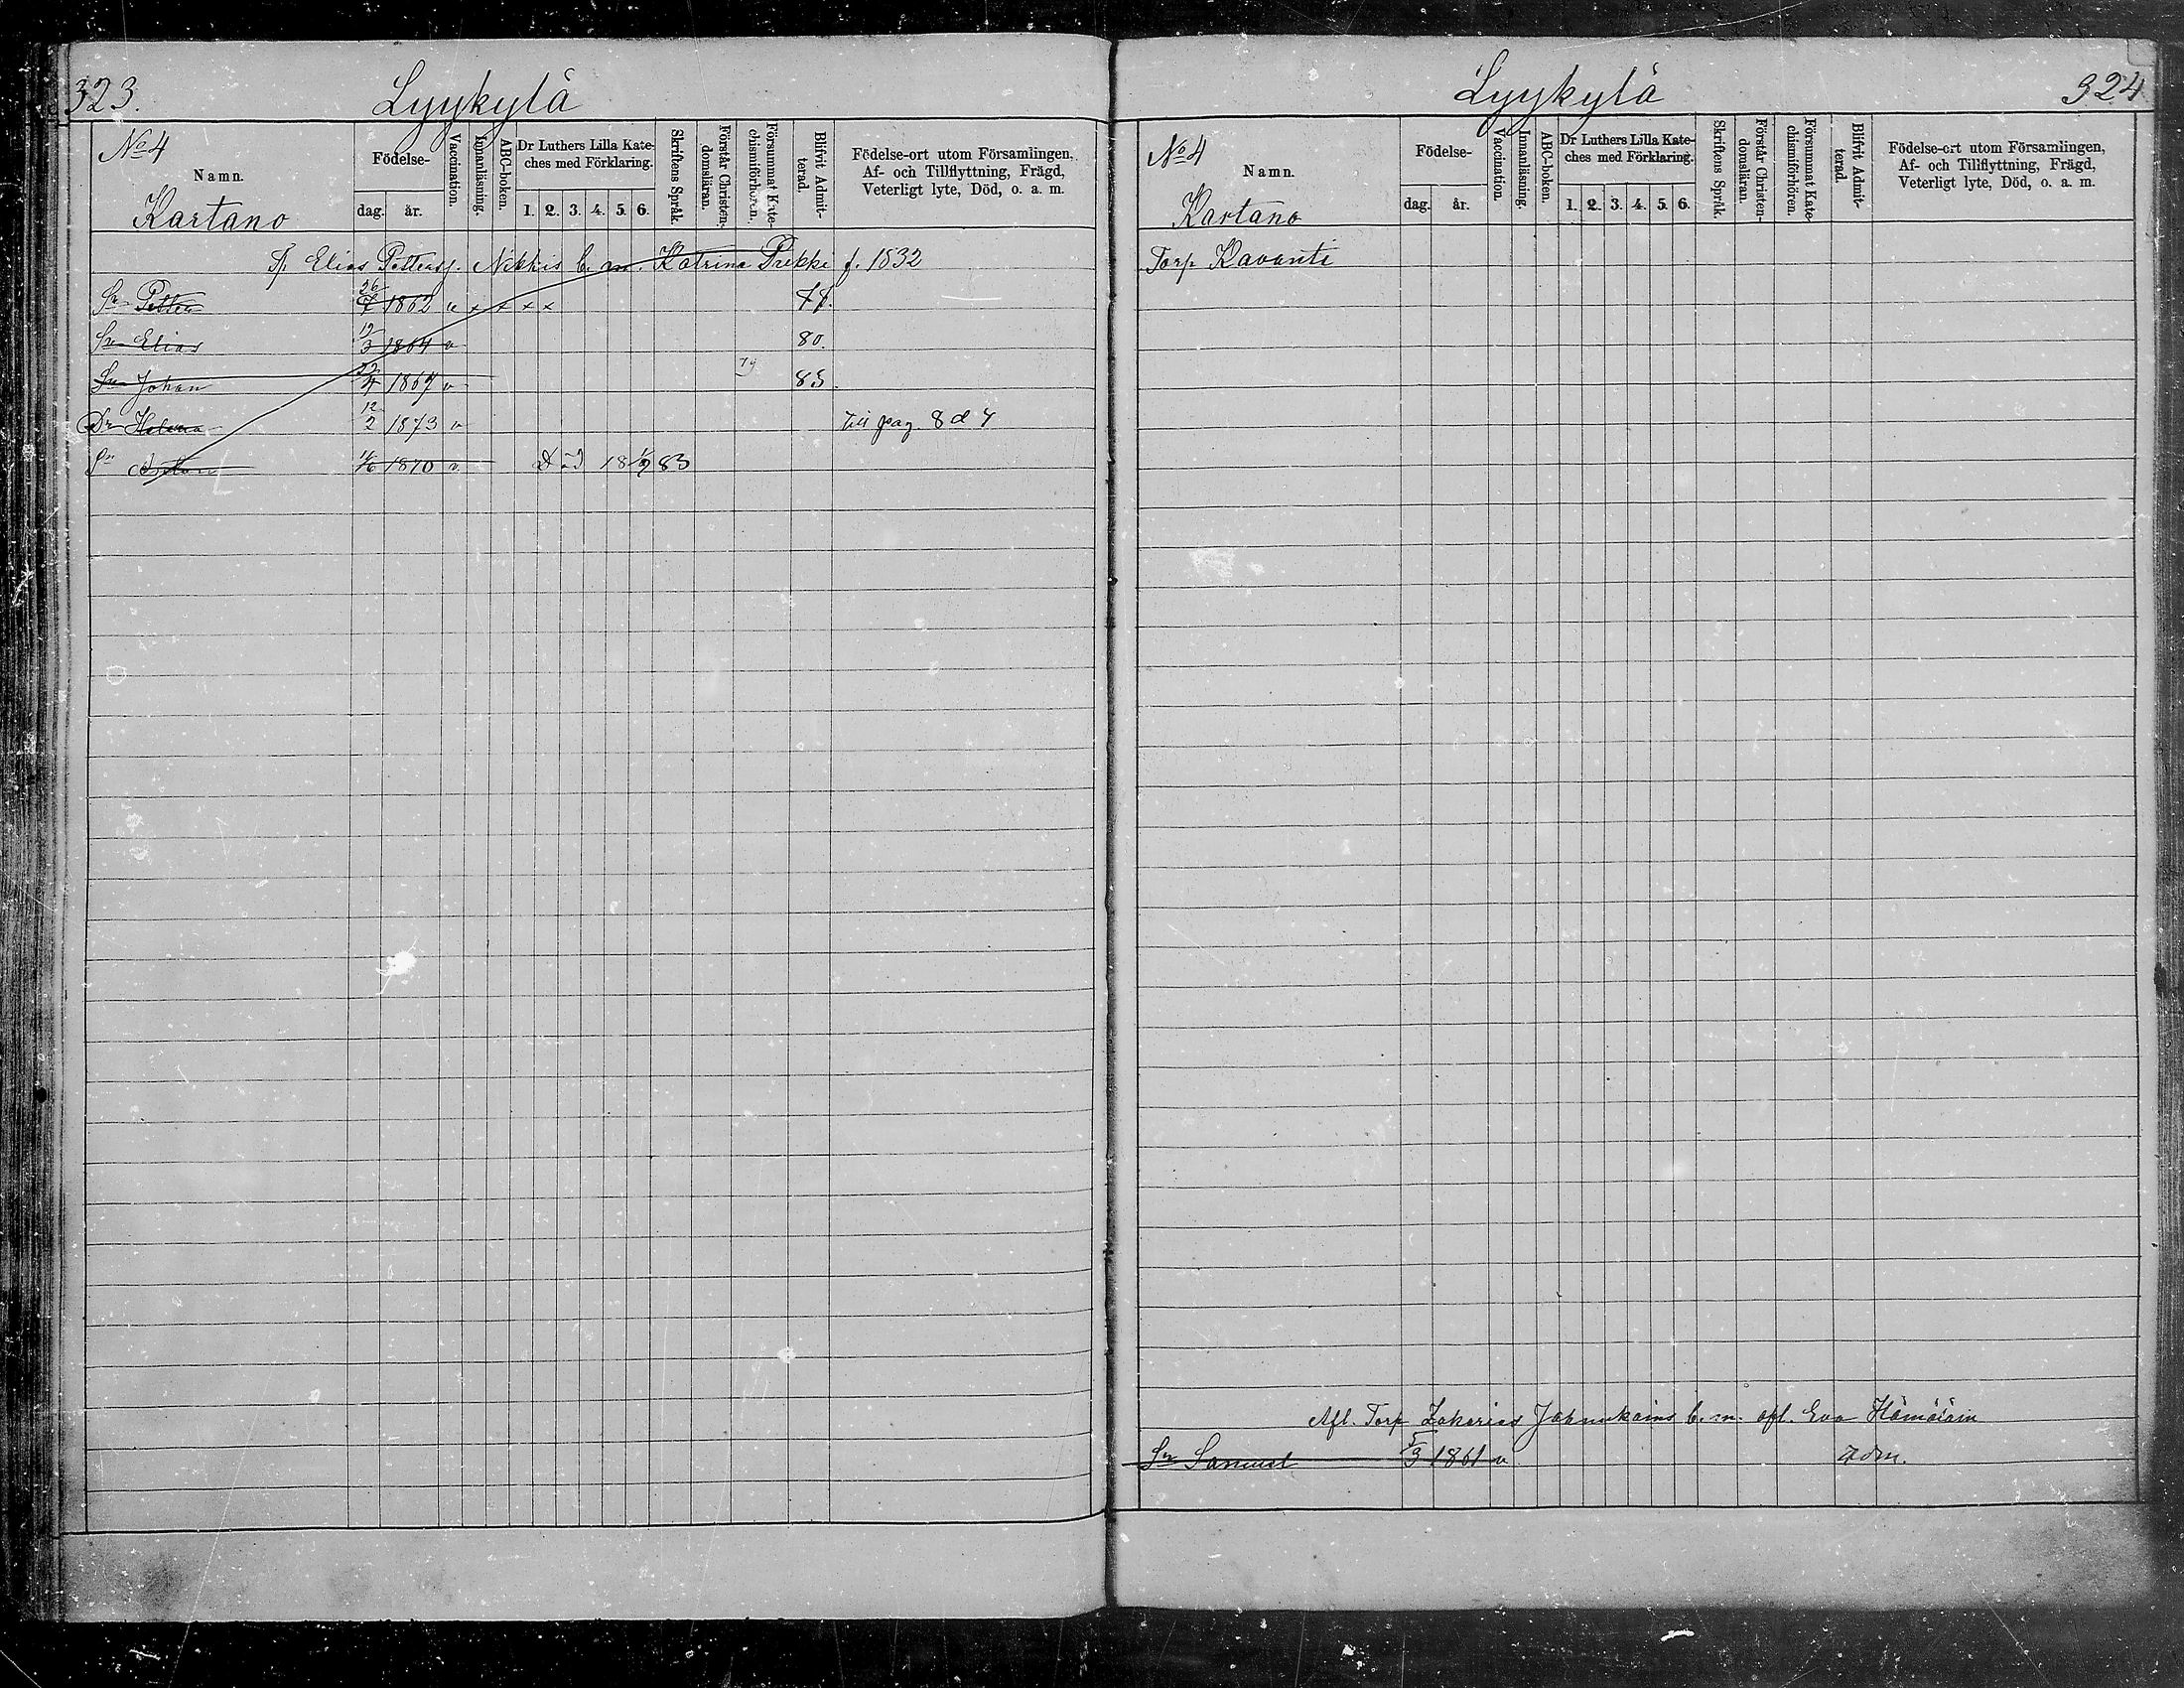 323.
Lyykylä
No 4
Namn.
Kartano
Födelse-
dag. år.
Vaccination.
Innanläsning.
ABC-boken.
Dr Luthers Lilla Kate-
ches med Förklaring.
1. 2. 3. 4. 5. 6.
Skriftens Språk.
Förstår Christen-
domsläran.
Försummat Kate-
chismiförhören.
Blifvit Admit-
terad.
Födelse-ort utom Församlingen,
Af- och Tillflyttning, Frägd,
Veterligt lyte, Död, o. a. m.
Elias Petterss. b. m. Katrina Prekke f. 1832
Sn Petter 26/7 1862 v x x x x 77.
Sn Elias 19/3 1864 v 80.
Sn Johan 1867 v 79 85.
Dr Helena 12/2 1873 v till pag 8 d 4
Sn 1870 v Död 83
Lyykylä
324
No 4
Namn.
Kartano
Födelse-
dag. år.
Vaccination.
Innanläsning.
ABC-boken.
Dr Luthers Lilla Kate-
ches med Förklaring.
1. 2. 3. 4. 5. 6.
Skriftens Språk.
Förstår Christen-
domsläran.
Försummat Kate-
chismiförhören.
Blifvit Admit-
terad.
Födelse-ort utom Församlingen,
Af- och Tillflyttning, Frägd,
Veterligt lyte, Död, o. a. m.
Torp Kavanti
Afl. Torp Zakarias Jahnukains b. m. afl. Eva Hämäläin
Sn Samuel 5/3 1861 v adm.